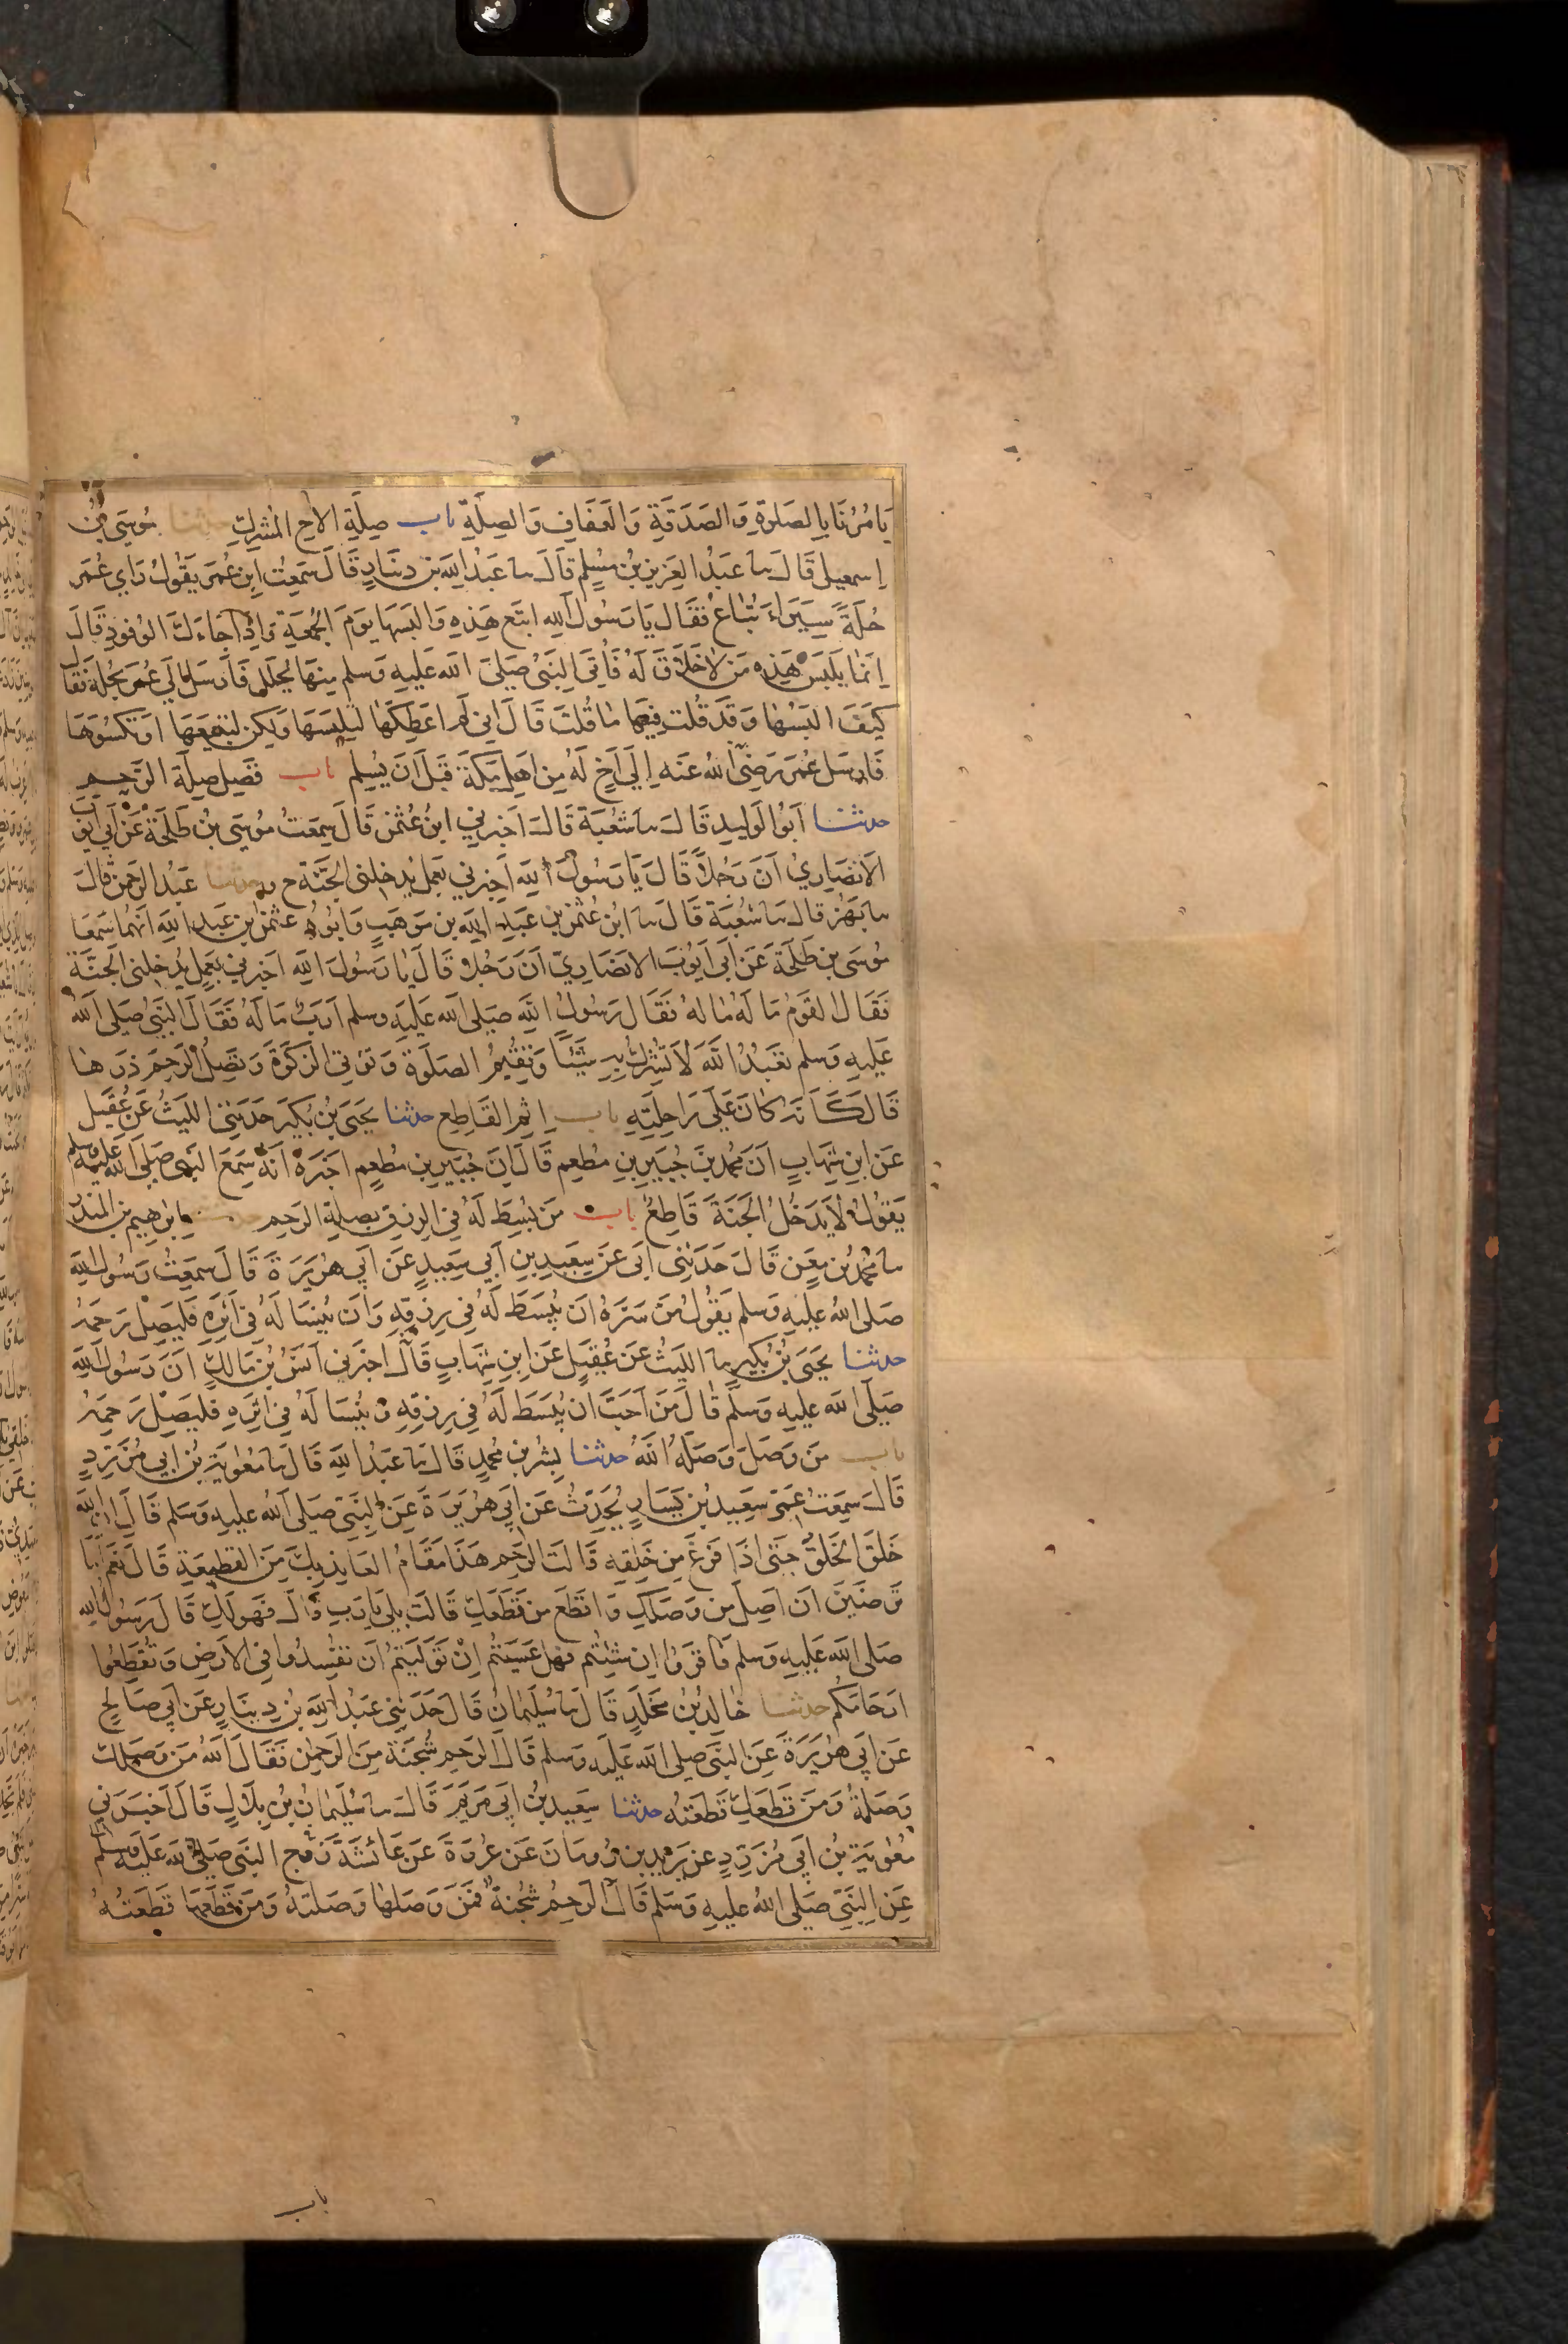 يَامُرُنَا بِالصَلوةِ وَالصَدَقَةِ وَالعَفَافِ وَالصِلَةِ باب صِلَةِ الاخِ المُشرِكِ حدثنا مُوسَى بْنُ
اِسمعيلَ قَالَ سا عَبْدُ العَزِيزِ بْنُ مُسْلِمٍ قَالَ سا عَبْدُ اللهِ بن دينَارٍ قَالَ سَمِعْتُ ابنَ عُمَرَ يَقُولُ رَاى عُمَرَ
حُلَةً سِيَرَاءَ تُبَاعُ فَقَالَ يَا رَسُولَ اللهِ ابتَع هَذِهِ وَالبَسهَا يَومَ الجُمعَةِ وَاِذَا جَاءَكَ الوُفُودِ قَالَ
اِنَما يَلبَسُ هَذِهِ مَن لاخَلَاقَ لَهُ فَاُتِيَ النَبِيُ صَلىَ اللهُ عَلَيهِ وَسَلم مِنهَا بِحُلَلٍ فَارسَلَ اِلَى عُمَرَ بِحُلَةٍ فَقَالَ
كَيفَ البَسُهَا وَقَد قُلتَ فِيهَا مَا قُلتَ قَالَ اِني لَم اعطِكَهَا لتَلبَسَهَا وَلكِن لتَبيعَهَا اَو تَكسُوَهَا
فَارسَلَ عُمَرَ رَضِيَ اللهُ عَنه اِلَى اَخٍ لَهُ مِن اَهلِ مَكَةَ قَبلَ اَن يُسلِم باب فَضلِ صِلَةِ الرَحِم
حدثنا اَبُو الوَليدِ قَالَ سا شُعبَة قَالَ اَخبَرني ابنُ عُثمنَ قَالَ سَمِعتُ مُوسَى بنُ طَلحَةَ عَن اَبي اَيوُبَ
الاَنصَارِي اَنَ رَجُلاً قَالَ يَا رَسُولَ اللهِ اَخبِرني بعَملٍ يُدخِلني الجَنَةَ ح وحدثنا عَبدُ الرَحمن قالَ
سا بَهز قالَ سا شُعبَة قَالَ سا ابن عُثمنَ بنُ عَبدِ اللهِ بن مَوهَبٍ وَابُوهُ عثمنُ بن عَبدِ اللهِ اَنَهُما سَمِعَا
مُوسَى بن طَلحَةَ عَن اَبي اَيوُبَ الانصَارِيّ اَنَ رَجُلاً قَالَ يَا رَسُولَ اللهِ اَخبِرني بعَمَلٍ يُدخِلني الجَنَةَ
فَقَالَ القَومُ مَا لَهُ مَا لَهُ فَقَالَ رَسُولُ اللهِ صَلى الله عَلَيهِ وسلم اَرَبٌ مَا لَهُ فَقَالَ النَبيُ صَلى اللهُ
عَلَيهِ وَسلم تَعبُدُ اللَهَ لاَ تُشرِكُ بِهِ شَيئًا وَتُقِيمُ الصَلَوةَ وَتؤتي الزَكَوةَ وَتَصِلُ الرَحِمَ ذَرهَا
قَالَ كَاَنَهُ كَانَ عَلَى رَاحِلَتِهِ باب اِثمِ القَاطِع حدثنا يَحيَى بنُ بُكَيرٍ حَدَثَني اللَيثُ عَن عُقَيلٍ
عَن ابنِ شِهَابٍ اَنَ مُحَمدَ بنَ جُبَيرِ بنِ مُطعِم قَالَ اِنَ جُبَيرِ بن مُطعِم اَخبَرَهُ اَنَهُ سَمِعَ النَبيَ صَلى اللهُ عَلَيهِ وسلم
يَقُولُ لاَ يَدخُلُ الجَنَةَ قَاطِعٌ باب مَن بُسِطَ لَهُ في الرِزقِ بصِلَةِ الرَحِم حدثنا اِبراهِيم بن المُنذِر
سا مُحَمَدُ بن مَعنٍ قَالَ حَدَثَني اَبي عَن سَعِيدِ بنِ اَبي سَعِيدٍ عَن اَبي هُرَيرَةَ قَالَ سمِعتُ رَسُولَ اللهِ
صَلى اللهُ عليهِ وَسلم يَقُولُ مَن سَرَهُ اَن يُبسَطَ لَهُ في رِزقِهِ وَاَن يُنسَا لَهُ في اَثَرِهِ فَليَصِل رَحِمَهُ
حدثنا يَحيَى بنُ بُكَيرٍ سا اللَيثُ عَن عُقَيلٍ عَن ابنِ شِهَابٍ قَالَ اخبَرَني اَنَسُ بنُ مَالِكٍ اَنَ رَسُولَ اللهِ
صَلَى اللهُ عليهِ وَسلَم قَالَ مَن اَحَبَ اَن يُبسَطَ لَهُ في رِزقِهِ وَيُنسَا لَهُ في اثَرِهِ فَليَصِل رَحِمَهُ
باب مَن وَصَلَ وَصَلَهُ اللَهُ حدثنا بِشرُ بن مُحَمدٍ قَالَ سا عَبدُ اللهِ قَالَ سا مُعَوِيَةُ بن اَبي مُزَرِدٍ
قَالَ سَمِعتُ عَمي سَعِيدَ بن يَسَارٍ يُحَدِثُ عَن اَبي هُرَيرَةَ عَنِ النَبيِ صَلى اللهُ عليهِ وَسَلم قَالَ اِنَ اللهَ
خَلَقَ الخَلقَ حَتى اِذَا فَرَغَ مِن خَلقِهِ قَالَتِ الرَحِم هَذَا مَقَامُ العَايذِ بِكَ مِنَ القَطِيعَةِ قَالَ نَعَم اَمَا
تَرضَينَ اَن اَصِلَ مَن وَصَلَكِ وَاقطَعَ مَن قَطَعَكِ قَالَت بَلى يَا رَبِ قَالَ فَهُوَ لَكِ قَالَ رَسُولُ الله
صَلى اللهُ عَلَيهِ وَسلم فَاقرَوا اِن شِئتُم فَهَل عَسَيتُم اِن تَوَلَيتُم اَن تُفسِدُوا في الاَرضِ وَتُقَطِعُوا
اَرحَامَكُم حدثنا خَالِدُ بنُ مَخلَدٍ قَالَ سا سُلَيمانُ قَالَ حَدَثَني عَبدُ اللهِ بنُ دِينَارٍ عَن اَبي صَالِحٍ
عَن اَبي هُرَيرَةَ عَنِ النَبي صَلى الله عَلَيهِ وَسلم قَالَ الرَحِم شُجنَةٌ مِنَ الرَحمنِ فَقَالَ اللهُ مَن وَصَلَكِ
وَصَلتهُ وَمَن قَطَعَكِ قَطَعتُه حدثنا سَعِيدُ بنُ اَبي مَريَمَ قَالَ سا سُلَيمانُ بنُ بِلاَلٍ قَالَ اَخبَرَني
مُعَوِيَةُ بنُ اَبي مُزَرِدٍ عن يَزيد بن رُومَانَ عَن عُروَةَ عَن عَائشَةَ زَوج النَبيِ صَلى الله عَلَيهِ وسلم
عَنِ النَبيِ صَلى اللهُ عليهِ وَسَلم قَالَ الرَحِمُ شُجنَةٌ فَمَن وَصَلهَا وَصَلتهُ وَمَن قَطَعَهَا قَطَعتُهُ
باب